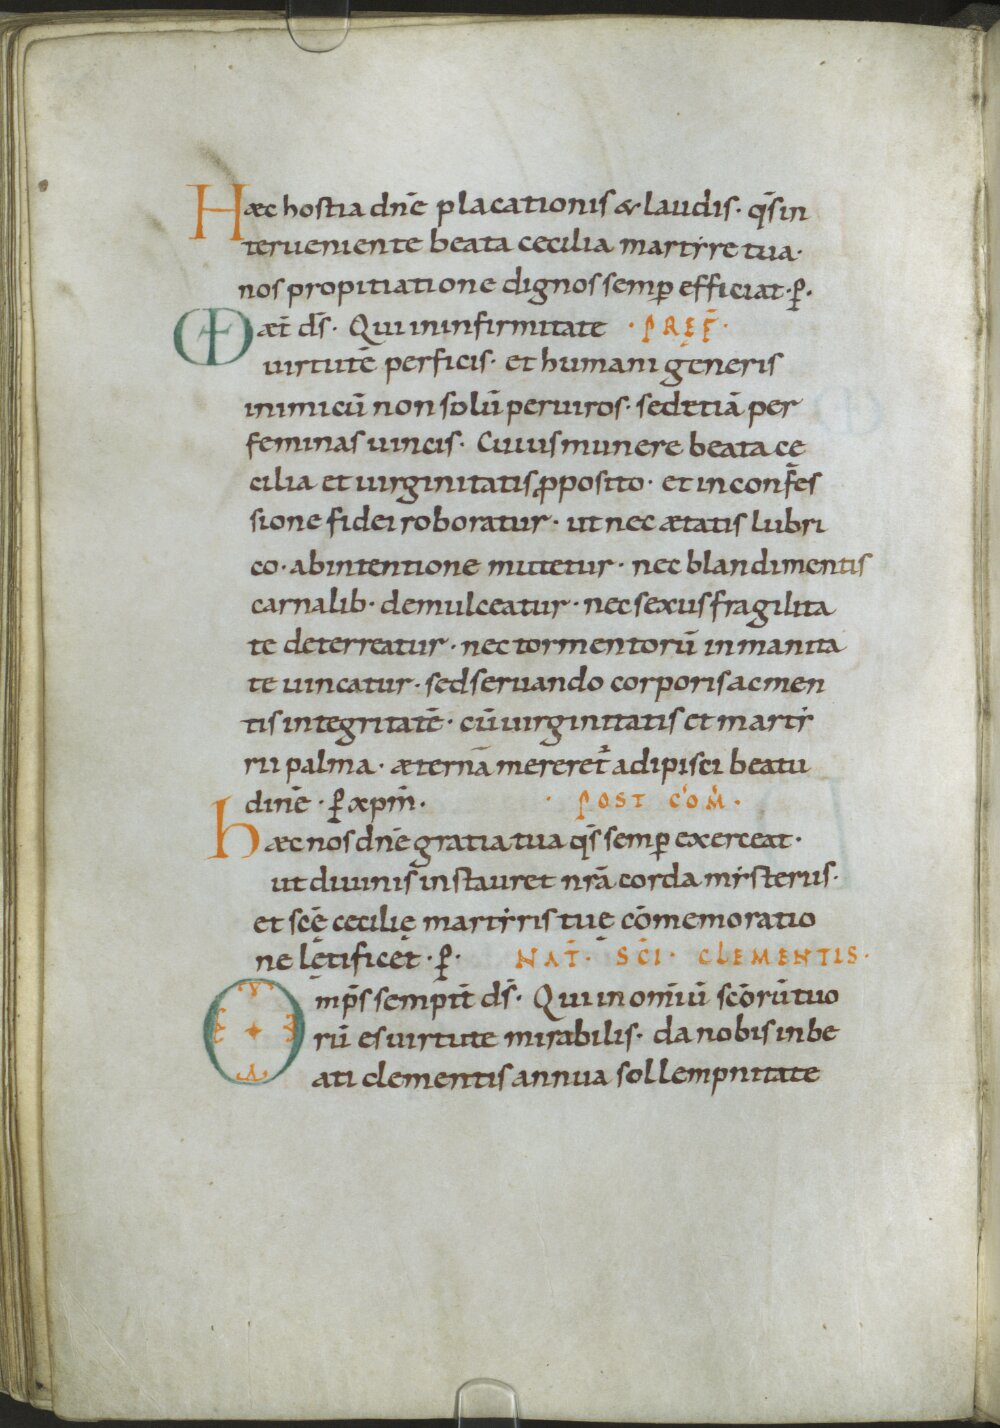 Haec hostia dn̄e placationis & laudis · qs̄ in
terueniente beata cecilia martẏre tua ·
nos propitiatione dignos semꝑ efficiat · ꝑ ·
aet̄ ds̄ · Qui in infirmitate · PREF̄ ·
uirtutē perficis · et humani generis
inimicū non solū per uiros · sed etiā per
feminas uincis · Cuius munere beata ce
cilia et uirginitatis ꝓposito · et in confes
sione fidei roboratur · ut nec aetatis lubri
co · ab intentione mutetur · nec blandimentis
carnalib · demulceatur · nec sexus fragilita
te deterreatur · nec tormentorū inmanita
te uincatur · sed seruando corporis ac men
tis integritatē · cū uirginitatis et martẏ
rii palma · aeternā mereret̄ adipisci beatu
dinē · ꝑ xp̄m · · POST CŌM̄ ·
haec nos dn̄e gratia tua qs̄ semꝑ exerceat ·
ut diuinis instauret nr̄a corda mẏsteriis ·
et scę̄ cecilię martẏris tuę cōmemoratio
ne lętificet · ꝑ · NAT̄ · SC̄I · CLEMENTIS ·
Omps̄ sempit̄ ds̄ · Qui in omīū scōrū tuo
rū es uirtute mirabilis · da nobis in be
ati clementis annua sollempnitate